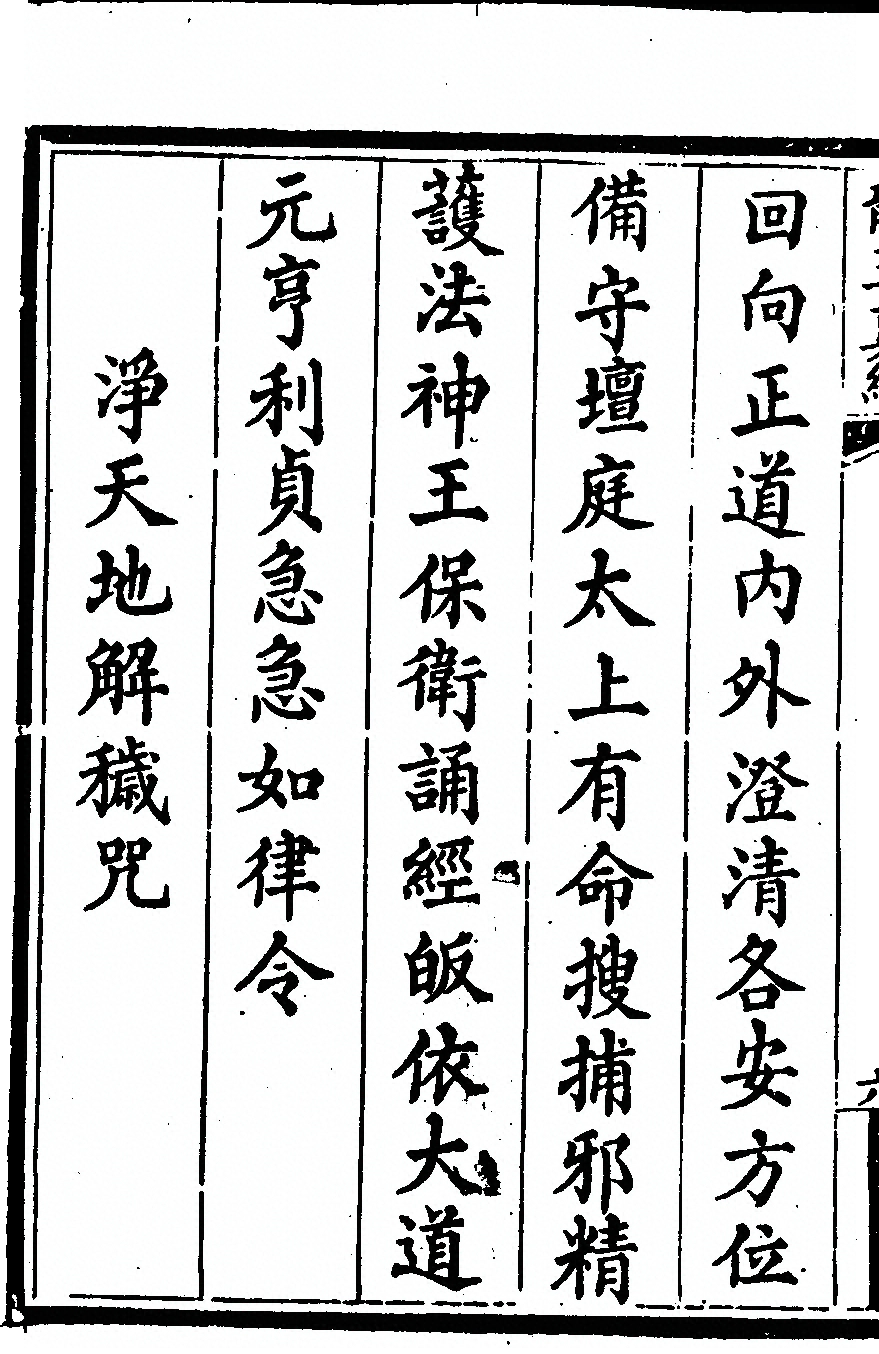 回向正道内外澄清各安方位
備守壇庭太上有命搜捕邪精
護法神王保衛誦經皈依大道
元亨利貞急急如律令
淨天地解穢咒